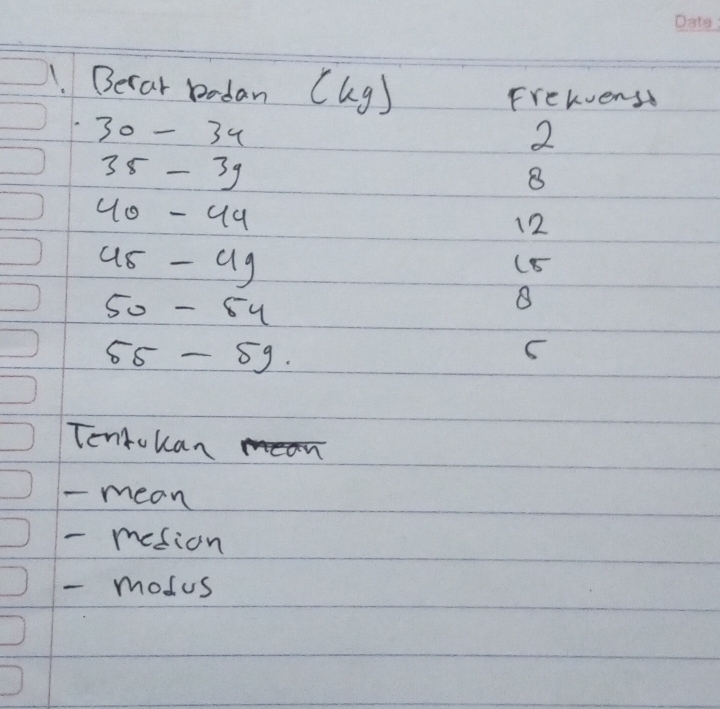 Date :
1. Berat badan (kg) Frekuensi
30 - 34 2
35 - 39 8
40 - 44 12
45 - 49 15
50 - 54 8
55 - 59. 5
Tentukan mean
- mean
- median
- modus